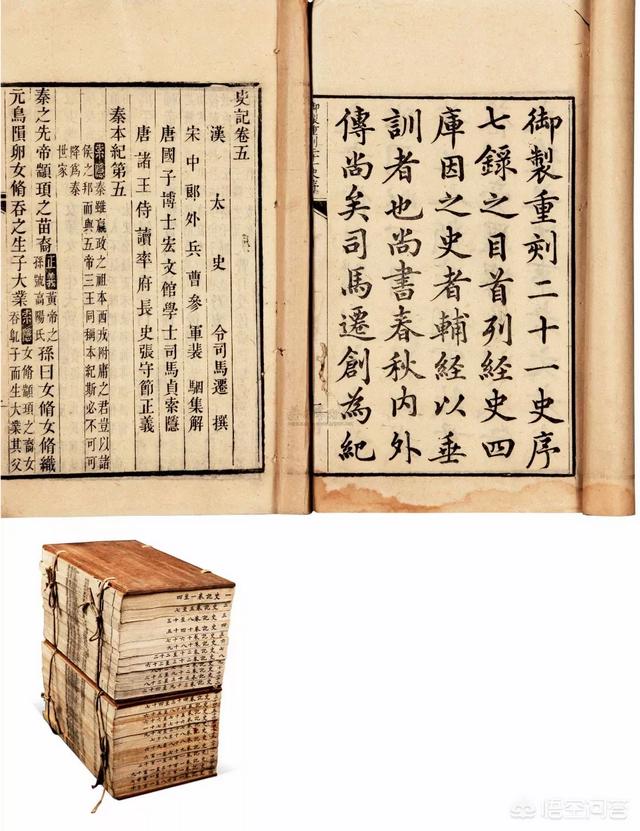 御製重刻二十一史序
七錄之目首列經史四
庫因之史者輔經以垂
訓者也尚書春秋內外
傳尚矣司馬遷創為紀
史記卷五
漢太史令司馬遷撰
宋中郎外兵曹參軍裴駰集解
唐國子博士宏文館學士司馬貞索隱
唐諸王侍讀率府長史張守節正義
秦本紀第五
索隱秦雖嬴政之祖本西戎附庸之君豈以諸
侯之邦而與五帝三王同稱本紀斯必不可可
降爲秦
世家
秦之先帝顓頊之苗裔正義黃帝之孫號高陽氏孫曰女脩女脩織
元鳥隕卵女脩吞之生子大業索隱女脩顓頊之裔女吞鳦子而生大業其父
史記卷一至四
史記卷五至七
悟空问答